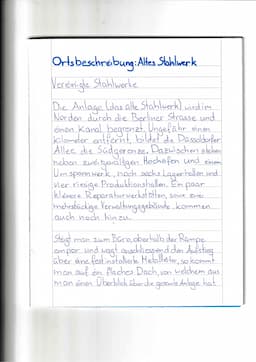 Ortsbeschreibung: Altes Stahlwerk
Vereinigte Stahlwerke
Die Anlage (das alte Stahlwerk) wird im
Norden durch die Berliner Strasse und
einen Kanal begrenzt. Ungefähr einen
kilometer entfernt, bildet die Düsseldorfer
Allee die Südgrenze. Dazwischen stehen
neben zwei gewaltigen Hochöfen und einem
Umspannwerk, noch sechs Lagerhallen und
vier riesige Produktionshallen. Ein paar
kleinere Reparaturwerkstätten, sowie zwei
mehrstöckige Verwaltungsgebäude kommen
auch noch hinzu.
Steigt man zum Büro, oberhalb der Rampe
empor und wagt anschliessend den Aufstieg
über eine fest installierte Metallleiter, so kommt
man auf ein flaches Dach, von welchem aus
man einen Überblick über die gesamte Anlage hat.